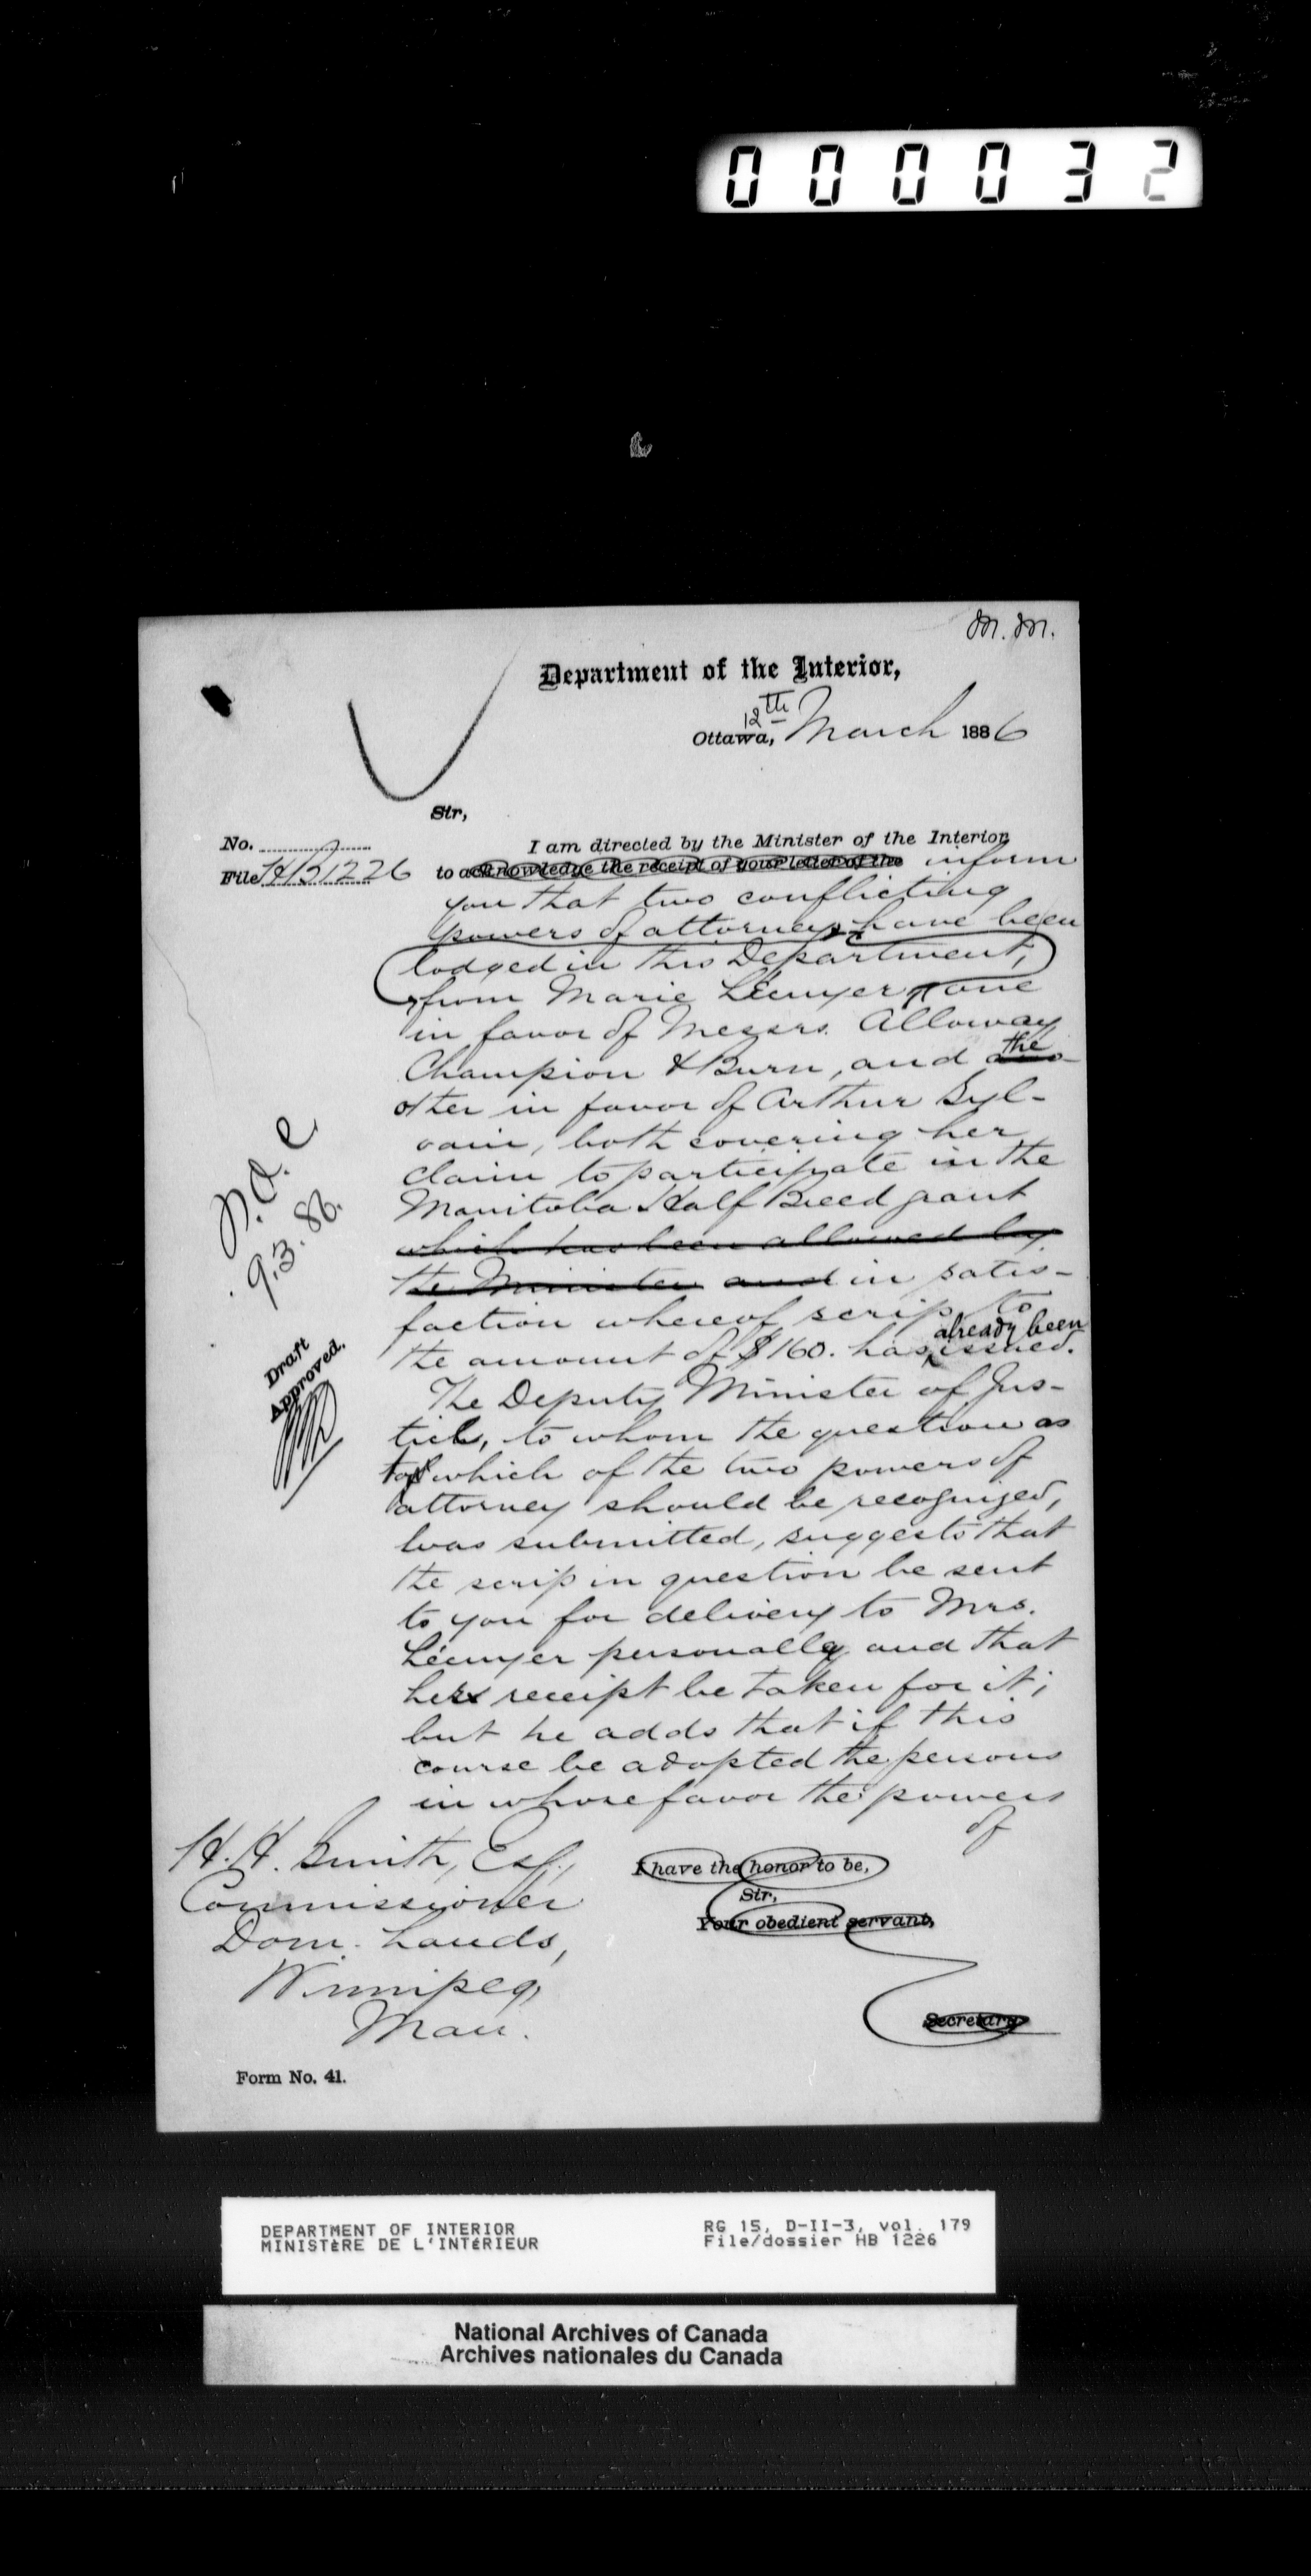 000032
M. M.
Department of the Interior,
12th
Ottawa, March 1886
Sir,
No.
File HB1226
I am directed by the Minister of the Interior,
to acknowledge the receipt of your letter of the inform
you that two conflicting
powers of attorney have been
lodged in this Department,
from Marie Lécuyer one
in favor of Messrs. Alloway
Champion & Burn, and the
other in favor of Arthur Syl-
vain, both covering her
claim to participate in the
Manitoba Half Breed grant
which has been allowed by
the Minister and in satis-
faction whereof scrip to
already been
the amount of $160. has issued.
The Deputy Minister of Jus-
tice, to whom the question as
to which of the two powers of
attorney should be recognized,
was submitted, suggests that
the scrip in question be sent
to you for delivery to Mrs.
Lécuyer personally and that
her receipt be taken for it;
but he adds that if this
course be adopted the persons
in whose favor the powers
of
9.3.86.
Draft
Approved.
H. H. Smith, Esq.,
Commissioner
Dom. Lands,
Winnipeg,
Man.
I have the honor to be,
Sir,
Your obedient servant,
Secretary
Form No. 41.
DEPARTMENT OF INTERIOR
MINISTÈRE DE L'INTÉRIEUR
RG 15, D-II-3, vol. 179
File/dossier HB 1226
National Archives of Canada
Archives nationales du Canada